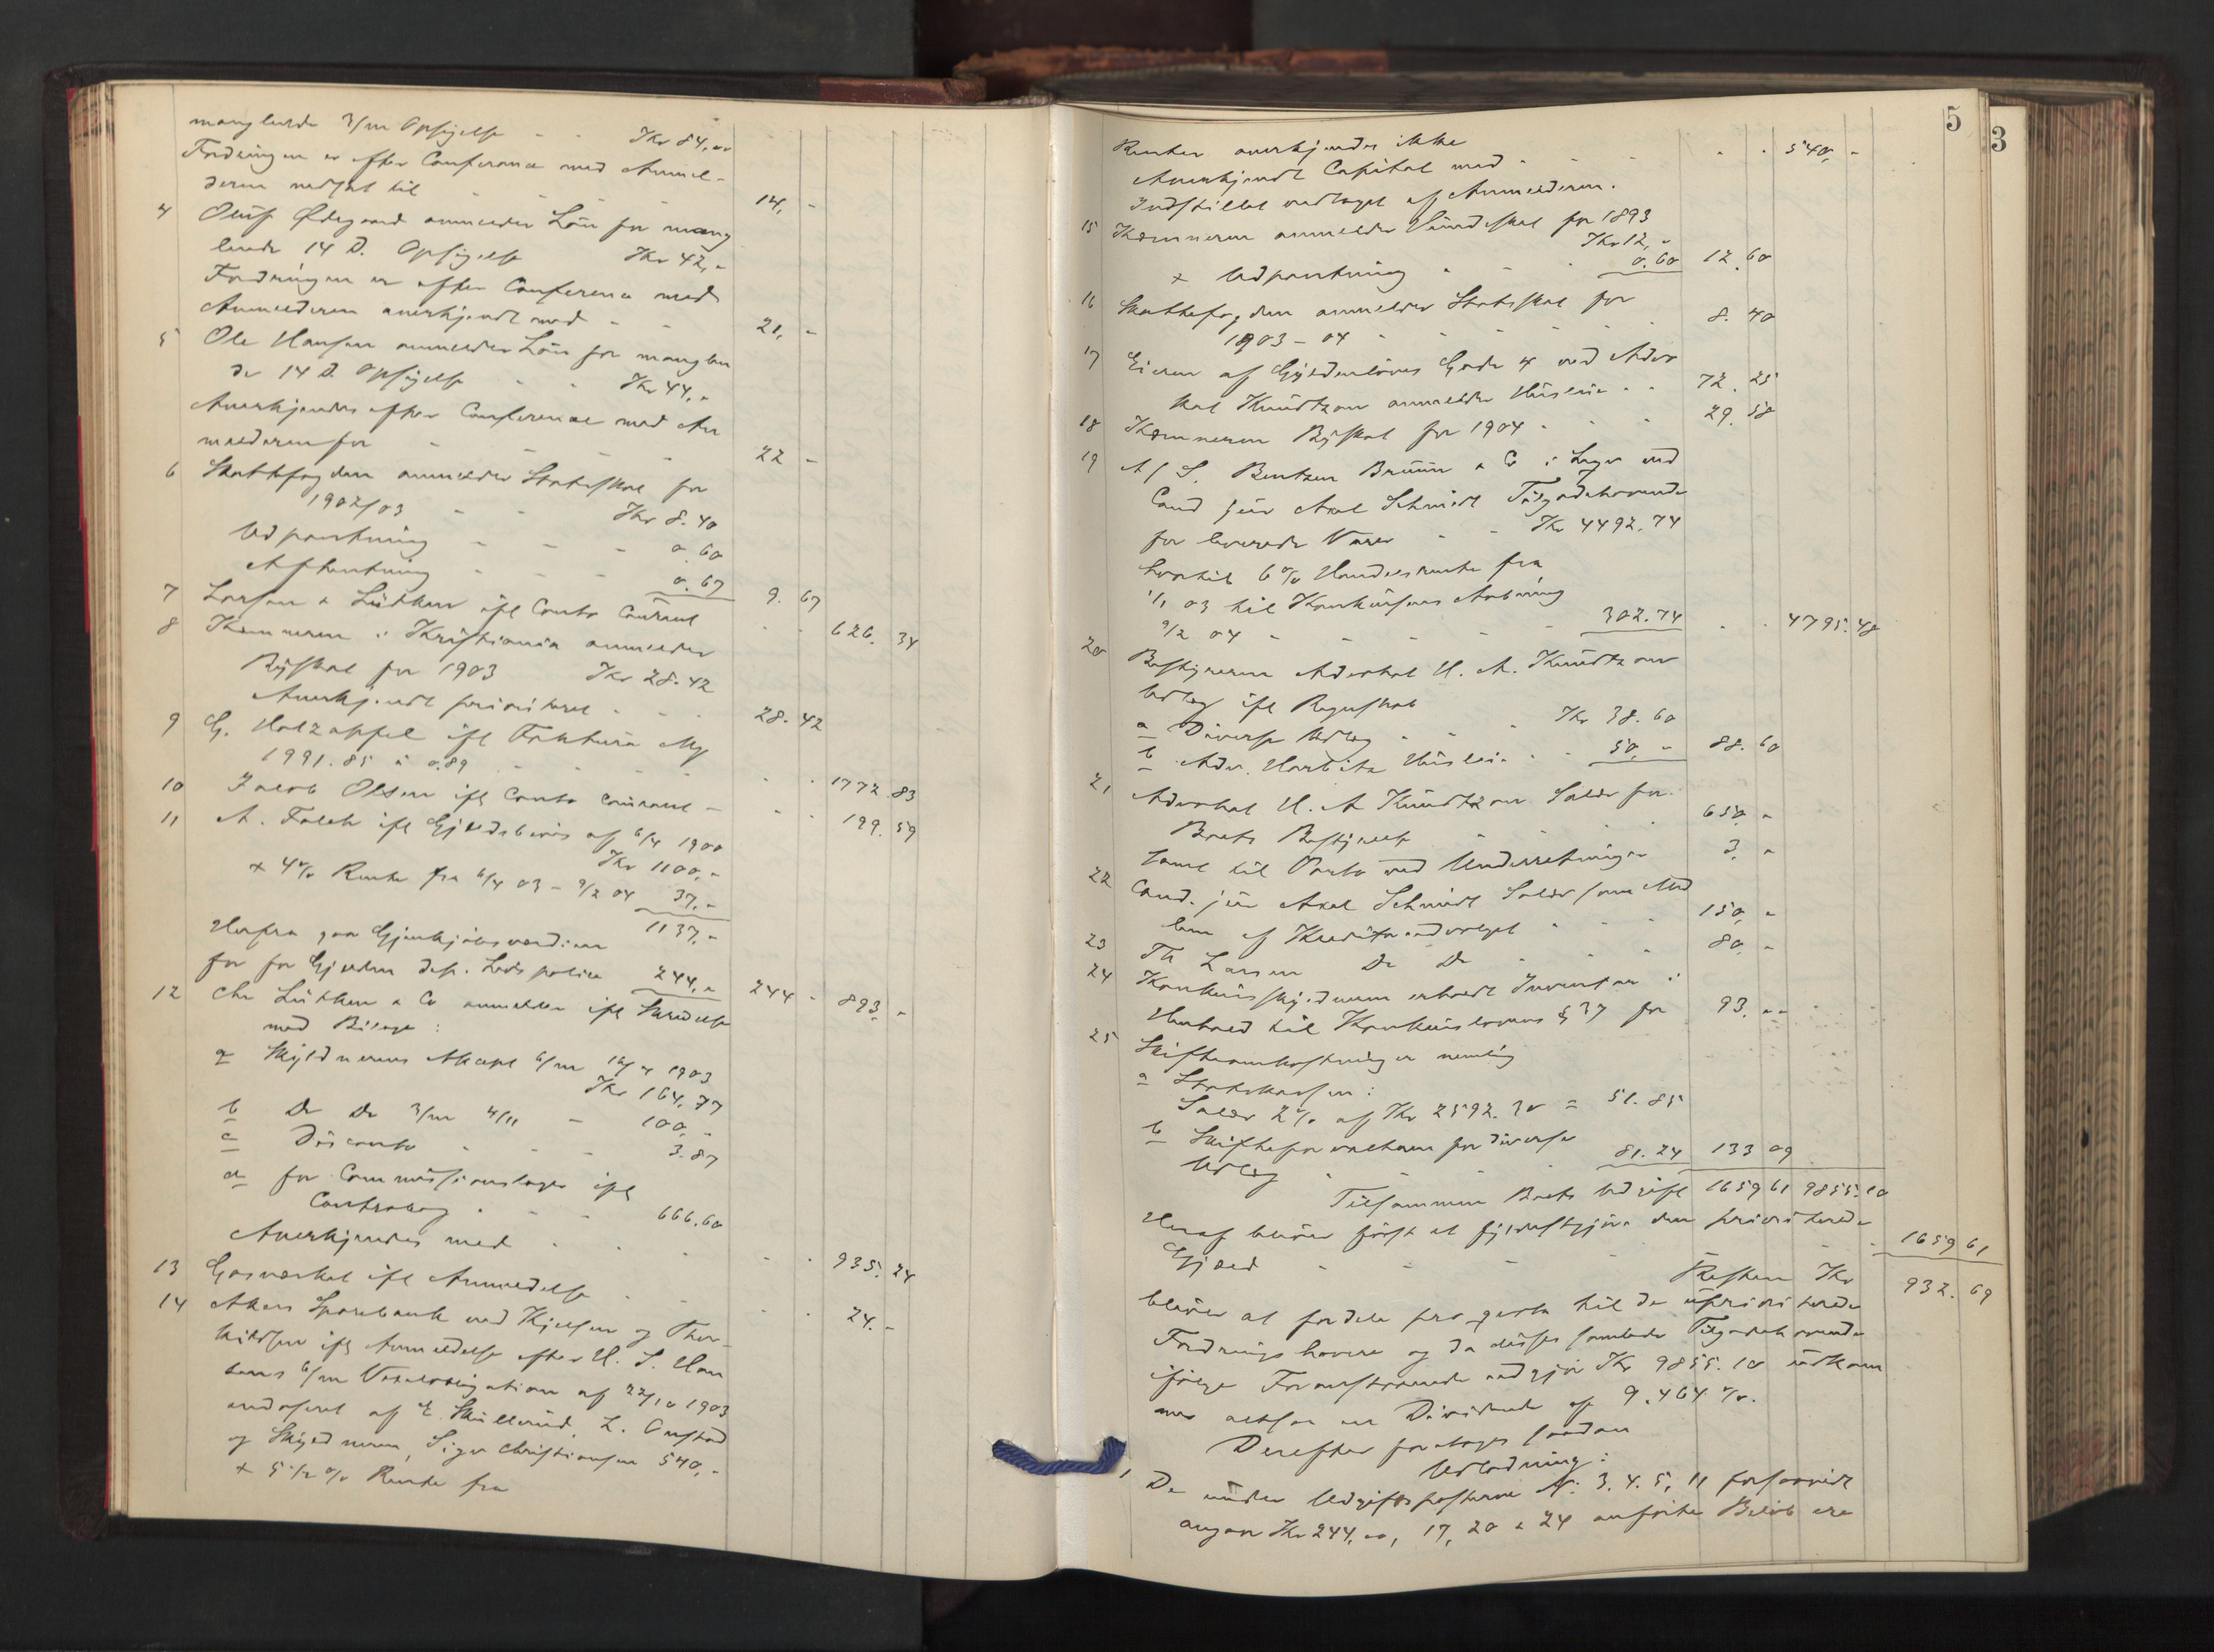 manglende 3/m Opsigelse - - Kr 84,00
Fordringen er efter Conferance med Anmel-
deren nedsat til - - - 14, -
4 Oluf Ødegaard anmelder Løn for mang
lende 14 D. Opsigelse Kr 42,-
Fordringen er efter Conferance med
Anmelderen anerkjendt med - - 21, -
5 Ole Hansen anmelder Løn for manglen
de 14 D. Opsigelse - - Kr 44,-
Anerkjendes efter Conferance med An
melderen for - - - 22 -
6 Skattefogden anmelder Statsskat for
1902/03 - - Kr 8.40
Udpantning - - - 0.60
Afhentning - - - 0.67 9. 67
7 Larsen & Lütken ifl Conto Courant - - 626. 34
8 Kemneren i Kristiania anmelder
Byskat for 1903 Kr 28.42
Anerkjendt prioriteret - - - 28. 42
9 G. Holzapfel ifl Faktura Mg
1991.85 à 0.89 - - - - - 1772. 83
10 Jacob Olsen ifl Conto Courant - - - 199. 59
11 A. Falch ifl Gjeldsbevis af 6/4 1900
Kr 1100,-
+ 4% Rente fra 6/4 03 - 9/2 04 37,-
1137,-
Herfra gaar Gjenkjøbsværdien
for for Gjælden dep. Livspolice 244,- 244 - 893, -
12 Chr Lütken & Co anmelder ifl Skrivelse
med Bilage:
a Skyldnerens Akcept 6/m 16/4 1903
Kr 164.77
b Do Do 3/m 4/11 - 100, -
c Disconto - - - 3.87
d for Commissionslager ifl
Contrabog - - - 666.60
Anerkjendes med - - - - - 935. 24
13 Gasværket ifl Anmeldelse - - - - 24. -
14 Akers Sparebank ved Kjelsen og Thor-
kildsen ifl Anmeldelse efter H. S. Han
sens 6/m Vexelobligation af 22/10 1903
endoseret af E. Skullerud, L. Onstad
og Skyldneren, Sigv Christiansen 540,-
+ 5 1/2 % Rente fra
5
3
Renter anerkjendes ikke
Anerkjendt Capital med - - - - - 540, -
Indstillet vedtaget af Anmelderen.
15 Kemneren anmelder Veiudskat for 1893
Kr 12,-
+ Udpantning - - - 0.60 12. 60
16 Skattefogden anmelder Statsskat for
1903-04 - - - - 8. 40
17 Eieren af Gyldenløves Gade 4 ved Advo
kat Knudtzon anmelder Husleie - - 72. 25
18 Kemneren Byskat for 1904 - - - 29. 58
19 A/S. Bentzen Bruun & Co i Lager ved
Cand jur Axel Schmidt Tilgodehavende
for leverede Varer - - Kr 4492.74
hvortil 6% Handelsrente fra
1/1 03 til Konkursens Aabning
9/2 04 - - - - - 302.74 - - 4795. 48
20 Bestyreren Advokat H. A. Knudtzon
Udlæg ifl Regnskab
a Diverse Udlæg - - - Kr 38.60
b Adv. Harbitz Husleie - - 50, - 88. 60
21 Advokat H. A Knudtzon Salær for
Boets Bestyrelse - - - 650, -
samt til Porto ved Underretninger 3, -
22 Cand. jur Axel Schmidt Salær som Med
lem af Kreditorudvalget - - - 150, -
23 Th Larsen Do Do - - - 80, -
24 Konkursskyldneren erholdt Inventar i
Henhold til Konkurslovens § 37 for 93. --
25 Skifteomkostninger nemlig
a Statskassen:
Salær 2% af Kr 2592.30 = 51.85
b Skifteforvalteren for diverse
Udlæg - - - - 81.24 133 09
Tilsammen Boets Udgift 1659 61 9855.10
Heraf bliver først at fyldestgjøre den prioriterede
Gjæld - - - - - - 1659 61
Resten Kr 932. 69
bliver at fordele pro qvota til de uprioriterede
Fordringshavere og da disses samlede Tilgodehavende
ifølge Foranstaaende udgjør Kr 9855.10 udkom
mer altsaa en Dividende af 9.464 %.
Derefter foretages saadan
Udlodning:
1, De under Udgiftsposterne No: 3. 4. 5, 11 forsaavidt
angaar Kr 244,00, 17, 20 & 24 anførte Beløb ere